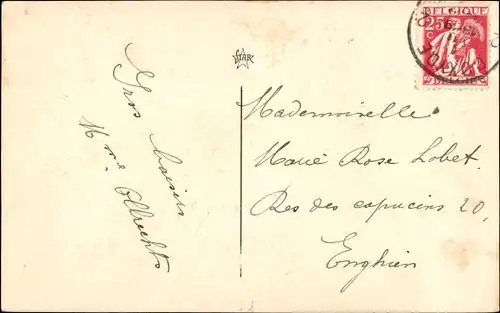 Gros baisers
Mme Olbrechts
STAR
BELGIQUE
25
C
BELGIE
Mademoiselle
Marie Rose Lobet
Res des capucins 20,
Enghien